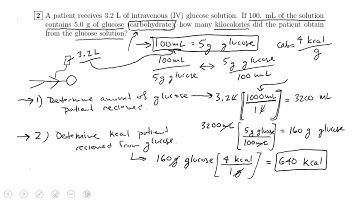 2 A patient receives 3.2 L of intravenous (IV) glucose solution. If 100. mL of the solution
contains 5.0 g of glucose (carbohydrate), how many kilocalories did the patient obtain
from the glucose solution?
100mL = 5g glucose
carb = 4 kcal / g
3.2L
100mL / 5g glucose ↔ 5g glucose / 100 mL
→ 1) Determine amount of glucose → 3.2L [1000mL / 1L] = 3200 mL
patient recieved.
3200mL [5g glucose / 100mL] = 160 g glucose
→ 2) Determine kcal patient
recieved from glucose.
↳ 160g glucose [4 kcal / 1g] = 640 kcal